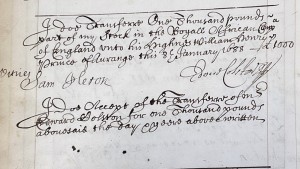 I doe Transferre One Thousand pounds
part of my Stock in the Royall African Comp:a
of England unto his Highnes William Henry
Prince of Aurange this 8: January 1688 — £ 1000
Witnes Edward Colston
Sam
I doe Accept of the Transferre of
Edward Colston for one Thousand pounds
abovesaid the day & yeere above written